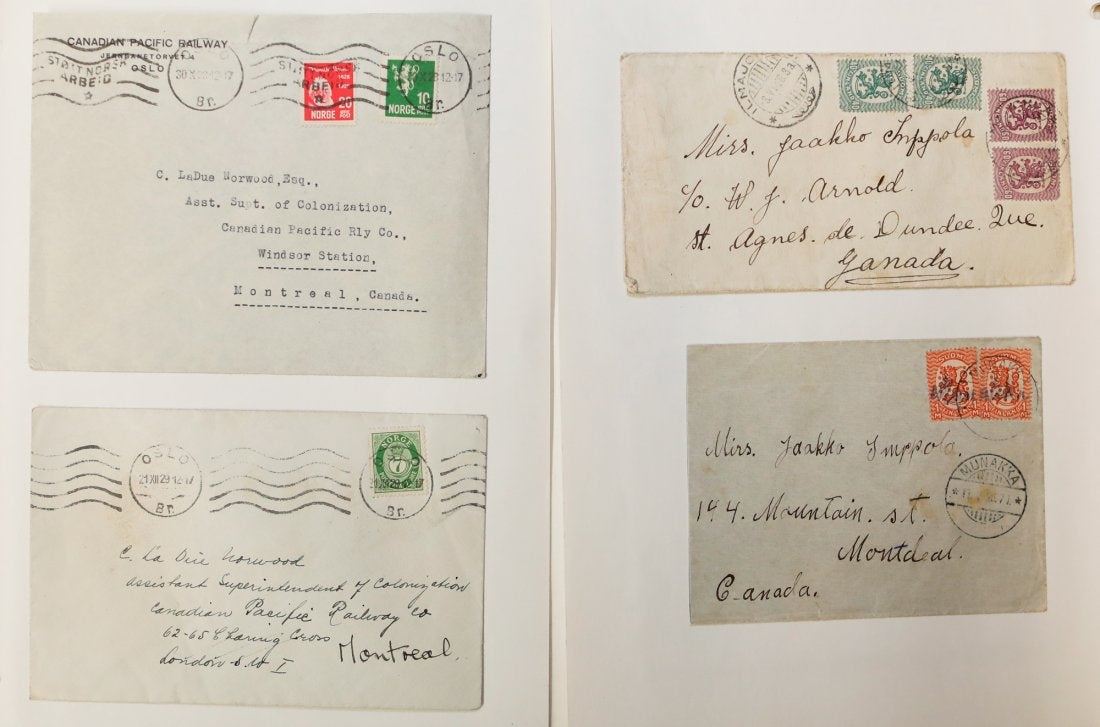 CANADIAN PACIFIC RAILWAY
JERNBANETORVET 4
OSLO
STØTT NORSK
ARBEID
OSLO
30 X 28 12-17
Br.
STØTT NORSK
ARBEID
OSLO
28 12-17
Br.
20
NORGE
10
NORGE
C. LaDue Norwood, Esq.,
Asst. Supt. of Colonization,
Canadian Pacific Rly Co.,
Windsor Station,
Montreal, Canada.
OSLO
21 XII 29 12-17
Br.
NORGE
7
Br.
C. La Due Norwood
Assistant Superintendent of Colonization
Canadian Pacific Railway Co
62-65 Charing Cross
London S.W I
Montreal.
Mirs. Jaakko Imppola
c/o. W. J. Arnold.
st. Agnes. de. Dundee. Que.
Ganada.
SUOMI SUOMI
FINLAND
MUNAKKA
Mirs. Jaakko Imppola.
144. Mountain. st.
Montdeal.
Canada.